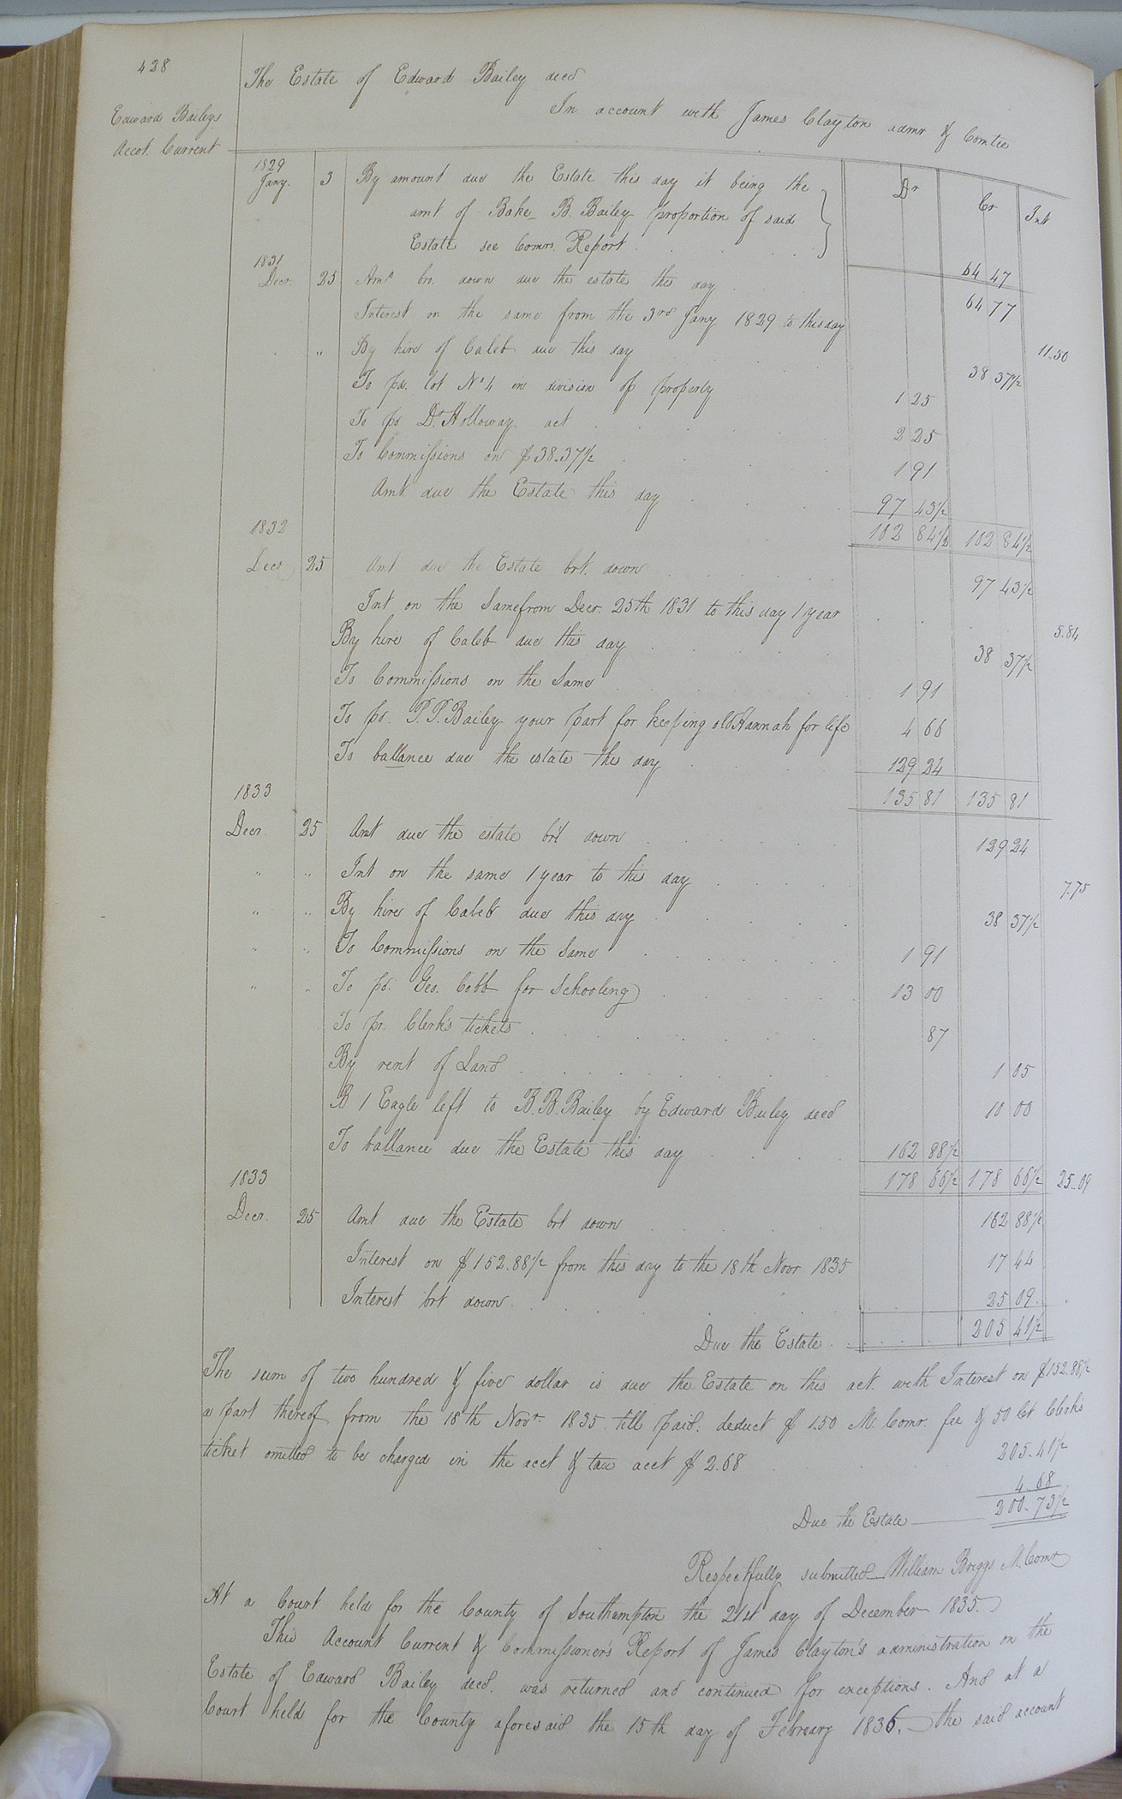 428
The Estate of Edward Bailey decd
In account with James Clayton admr & Comtee
Edward Baileys
Accot. Current
Dr Cr Int
1829
Jany. 3 By amount due the Estate this day it being the
amt of Bake B. Bailey proportion of said
Estate see Comrs. Report . 64 47
1831
Decr. 25 Amt bro. down due the estate this day . 64 77
Interest on the same from the 3rd Jany 1829 to this day 11.50
" By hire of Caleb due this day 38 37½
To pd. lot No 4 in division of property 1 25
To pd Dr Holloway act 2 25
To Commissions on $38.37½ 1 91
Amt due the Estate this day . 97 43½
102 84½ 102 84½
1832
Decr 25 Amt due the Estate brt. down 97 43½
Int on the Same from Decr. 25th 1831 to this day 1 year 5.84
By hire of Caleb due this day 38 37½
To Commissions on the Same 1 91
To pd. P.P. Bailey your part for keeping old Hannah for life 4 66
To ballance due the estate the day 129 24
135 81 135 81
1833
Decr. 25 Amt due the estate brt down 129 24
" " Int on the same 1 year to this day 7.75
" " By hire of Caleb due this day 38 37½
" " To Commissions on the Same 1 91
" " To pd. Geo. Cobb for Schooling 13 00
To pd. Clerk's tickets 87
By rent of Land 1 05
B 1 Eagle left to B.B. Bailey by Edward Bailey decd 10 00
To ballance due the Estate this day 162 88½
178 66½ 178 66½ 25.09
1833
Decr. 25 Amt due the Estate brt down 162 88½
Interest on $152.88½ from this day to the 18th Novr 1835 17 44
Interest brt down 25 09
Due the Estate 205 41½
The sum of two hundred & five dollar is due the Estate on this act. with Interest on $152.88½
a part thereof from the 18th Novr. 1835 till paid. deduct $1.50 M. Comr. fee & 50 Ct Clerks
ticket omitted to be charged in the acct & tax acct $2.68 205.41½
4.68
Due the Estate 200.73½
Respectfully submitted William Briggs M. Comr
At a Court held for the County of Southampton the 21st day of December 1835.
This Account Current & Commissioner's Report of James Clayton's administration on the
Estate of Edward Bailey decd. was returned and continued for exceptions. And at a
Court held for the County aforesaid the 15th day of February 1836. the said account